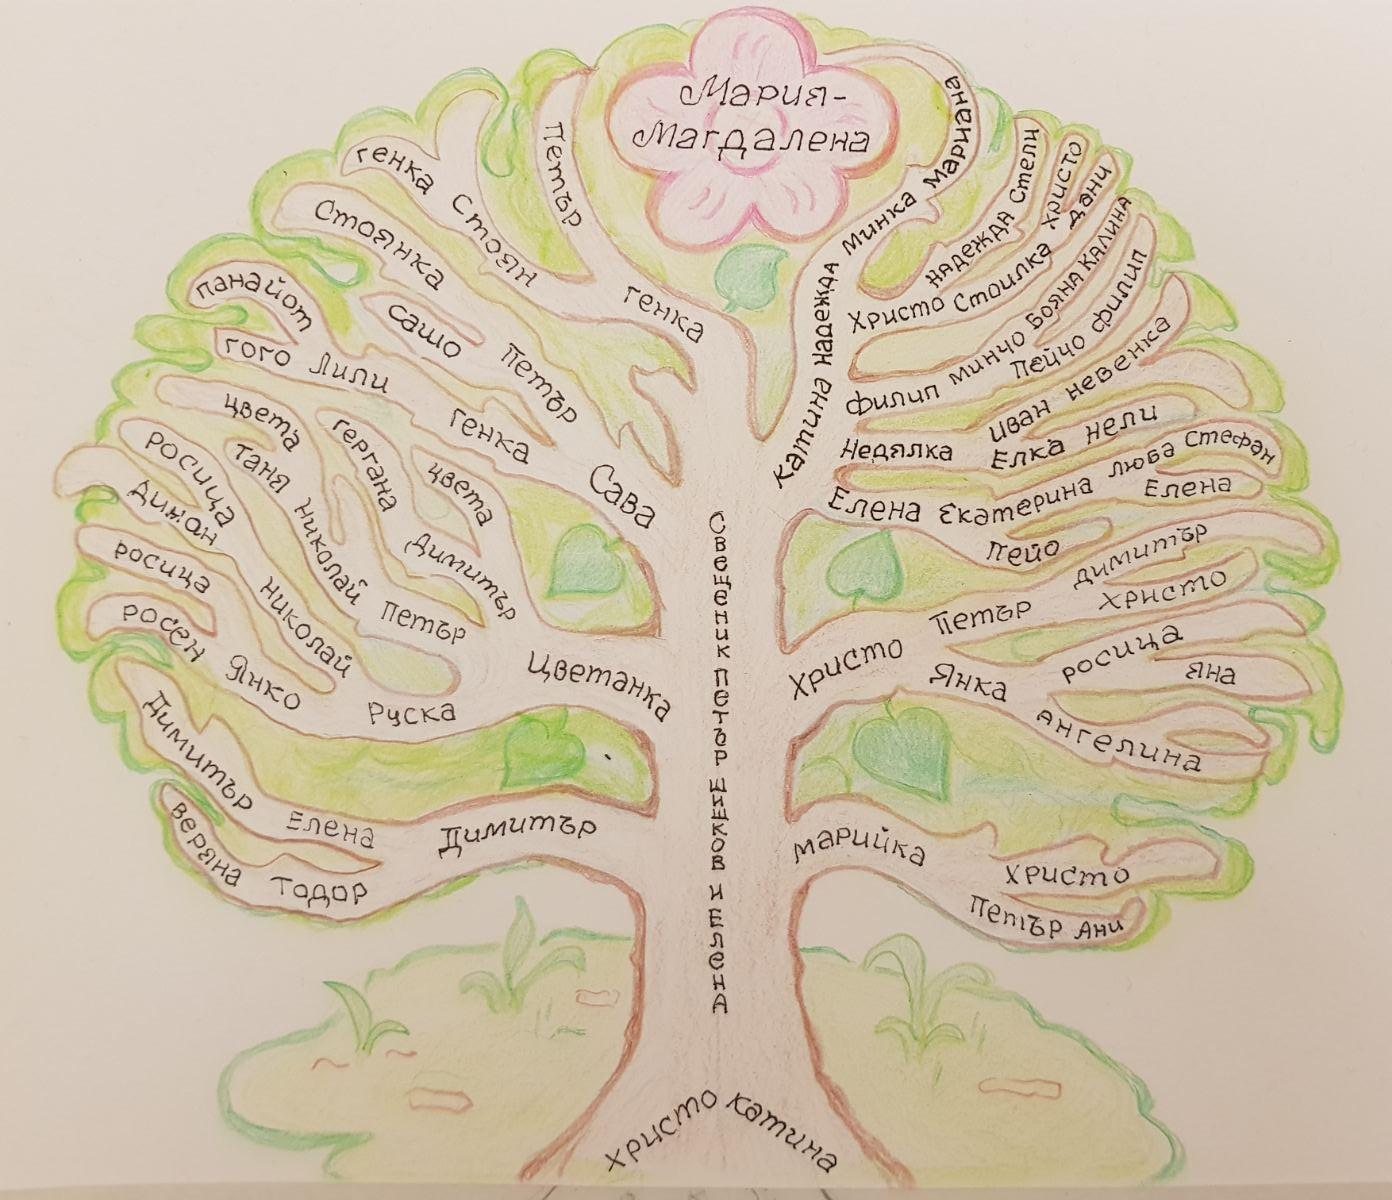 Мария-
Магдалена
Генка Стоян
Петър
Генка
Стоянка
Сашо
Петър
Панайот
Гого Лили
Генка
Сава
Цвета
Таня Николай
Гергана
Цвета
Димитър
Петър
Росица
Николай
Росица
Росен Янко
Руска
Цветанка
Димитър
Елена
Димитър
Веряна Тодор
Катина Надежда
Минка Мариана
Надежда Стели
Христо Стоилка Христо
Дани
Филип Минчо Бояна Калина
Пейчо Филип
Недялка
Иван Невенка
Елка Нели
Елена Екатерина Люба Стефан
Елена
Пейо
Христо
Петър
Димитър
Христо
Янка
Росица
Яна
Ангелина
Марийка
Христо
Петър Ани
Свещеник Петър Шишков и Елена
Христо Катина